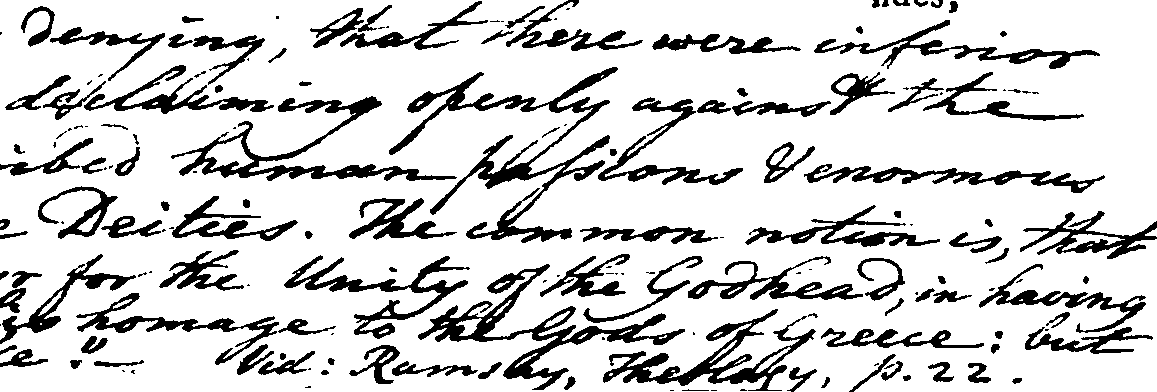 denying, that there were inferior
declaiming openly against the
ribed human passions & enormous
Deities. The common notion is, that
for the Unity of the Godhead, in having
homage to the Gods of Greece: but
Vid: Ramsay, Theology, p. 22.